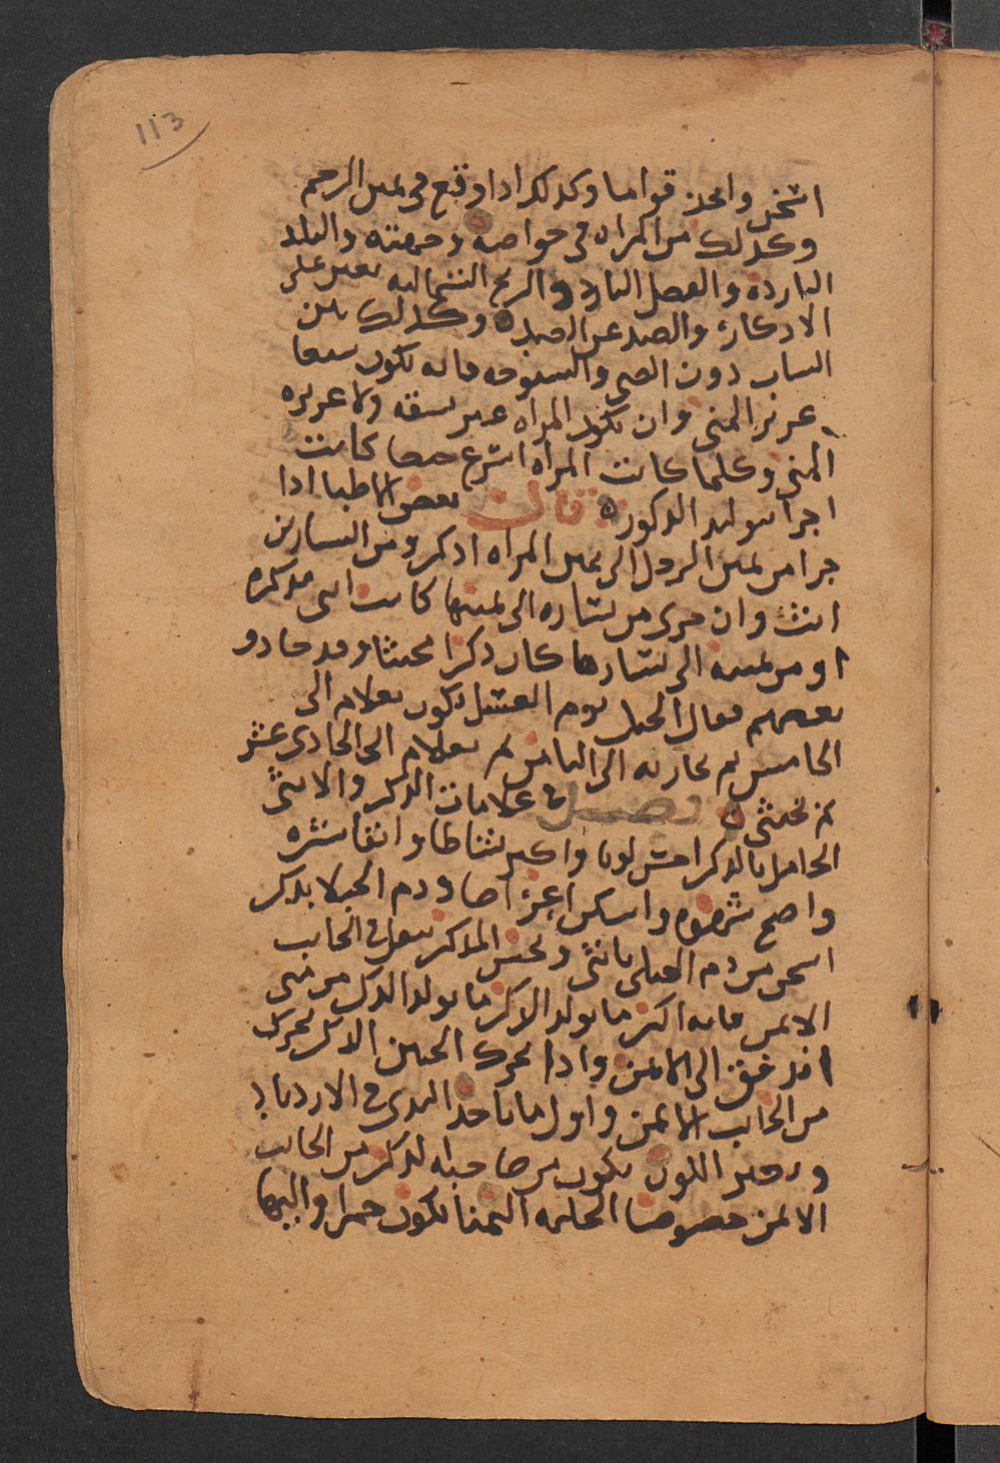 113
اسخن واثخن قواما وكدلك ادا وقع فى يمين الرحم
وكدلك من المراه فى خواصه وجهته والبلد
البارده والفصل البارد والريح الشماليه يعين على
الادكار والضد عن الضد وكدلك سن
الشاب دون الصبى والشيوخه فانه يكون
عزيز المنى وان تكون المراه غير ولا عزيزه
المنى وكلما كانت المراه اسرع حيضا كانت
اجرا بتوليد الدكوره قال بعض الاطبا ادا
جرا من يمين الرجل الى يمين المراه ادكر ومن اليسارين
انث وان جرى من يساره الى يمينها كانت انثى مدكره
او من يمينه الى يسارها كان دكرا مخنثا وقد
بعضهم فقال الحبل يوم الغسل يكون بغلام الى
الخامس ثم بجاريه الى الثامن ثم بغلام الى الحادى عشر
ثم خنثى فصل فى علامات الدكر والانثى
الحامل بالدكر احسن لونا واكثر نشاطا وانقا بشره
واصح شهوه واسكن اعراضا ودم الحبلا بدكر
اسخن من دم الحبلى بانثى وتحس المدكر ثقل فى الجانب
الايمن فانه اكثر ما يولد الدكر من منى
اندفق الى الايمن وادا تحرك الجنين الدكر تحرك
من الجانب الايمن واول ما ياخد الثدى فى الازدياد
وتغير اللون يكون من صاحبه الدكر من الجانب
الايمن خصوصا الحلمه اليمنا تكون حمرا واليها